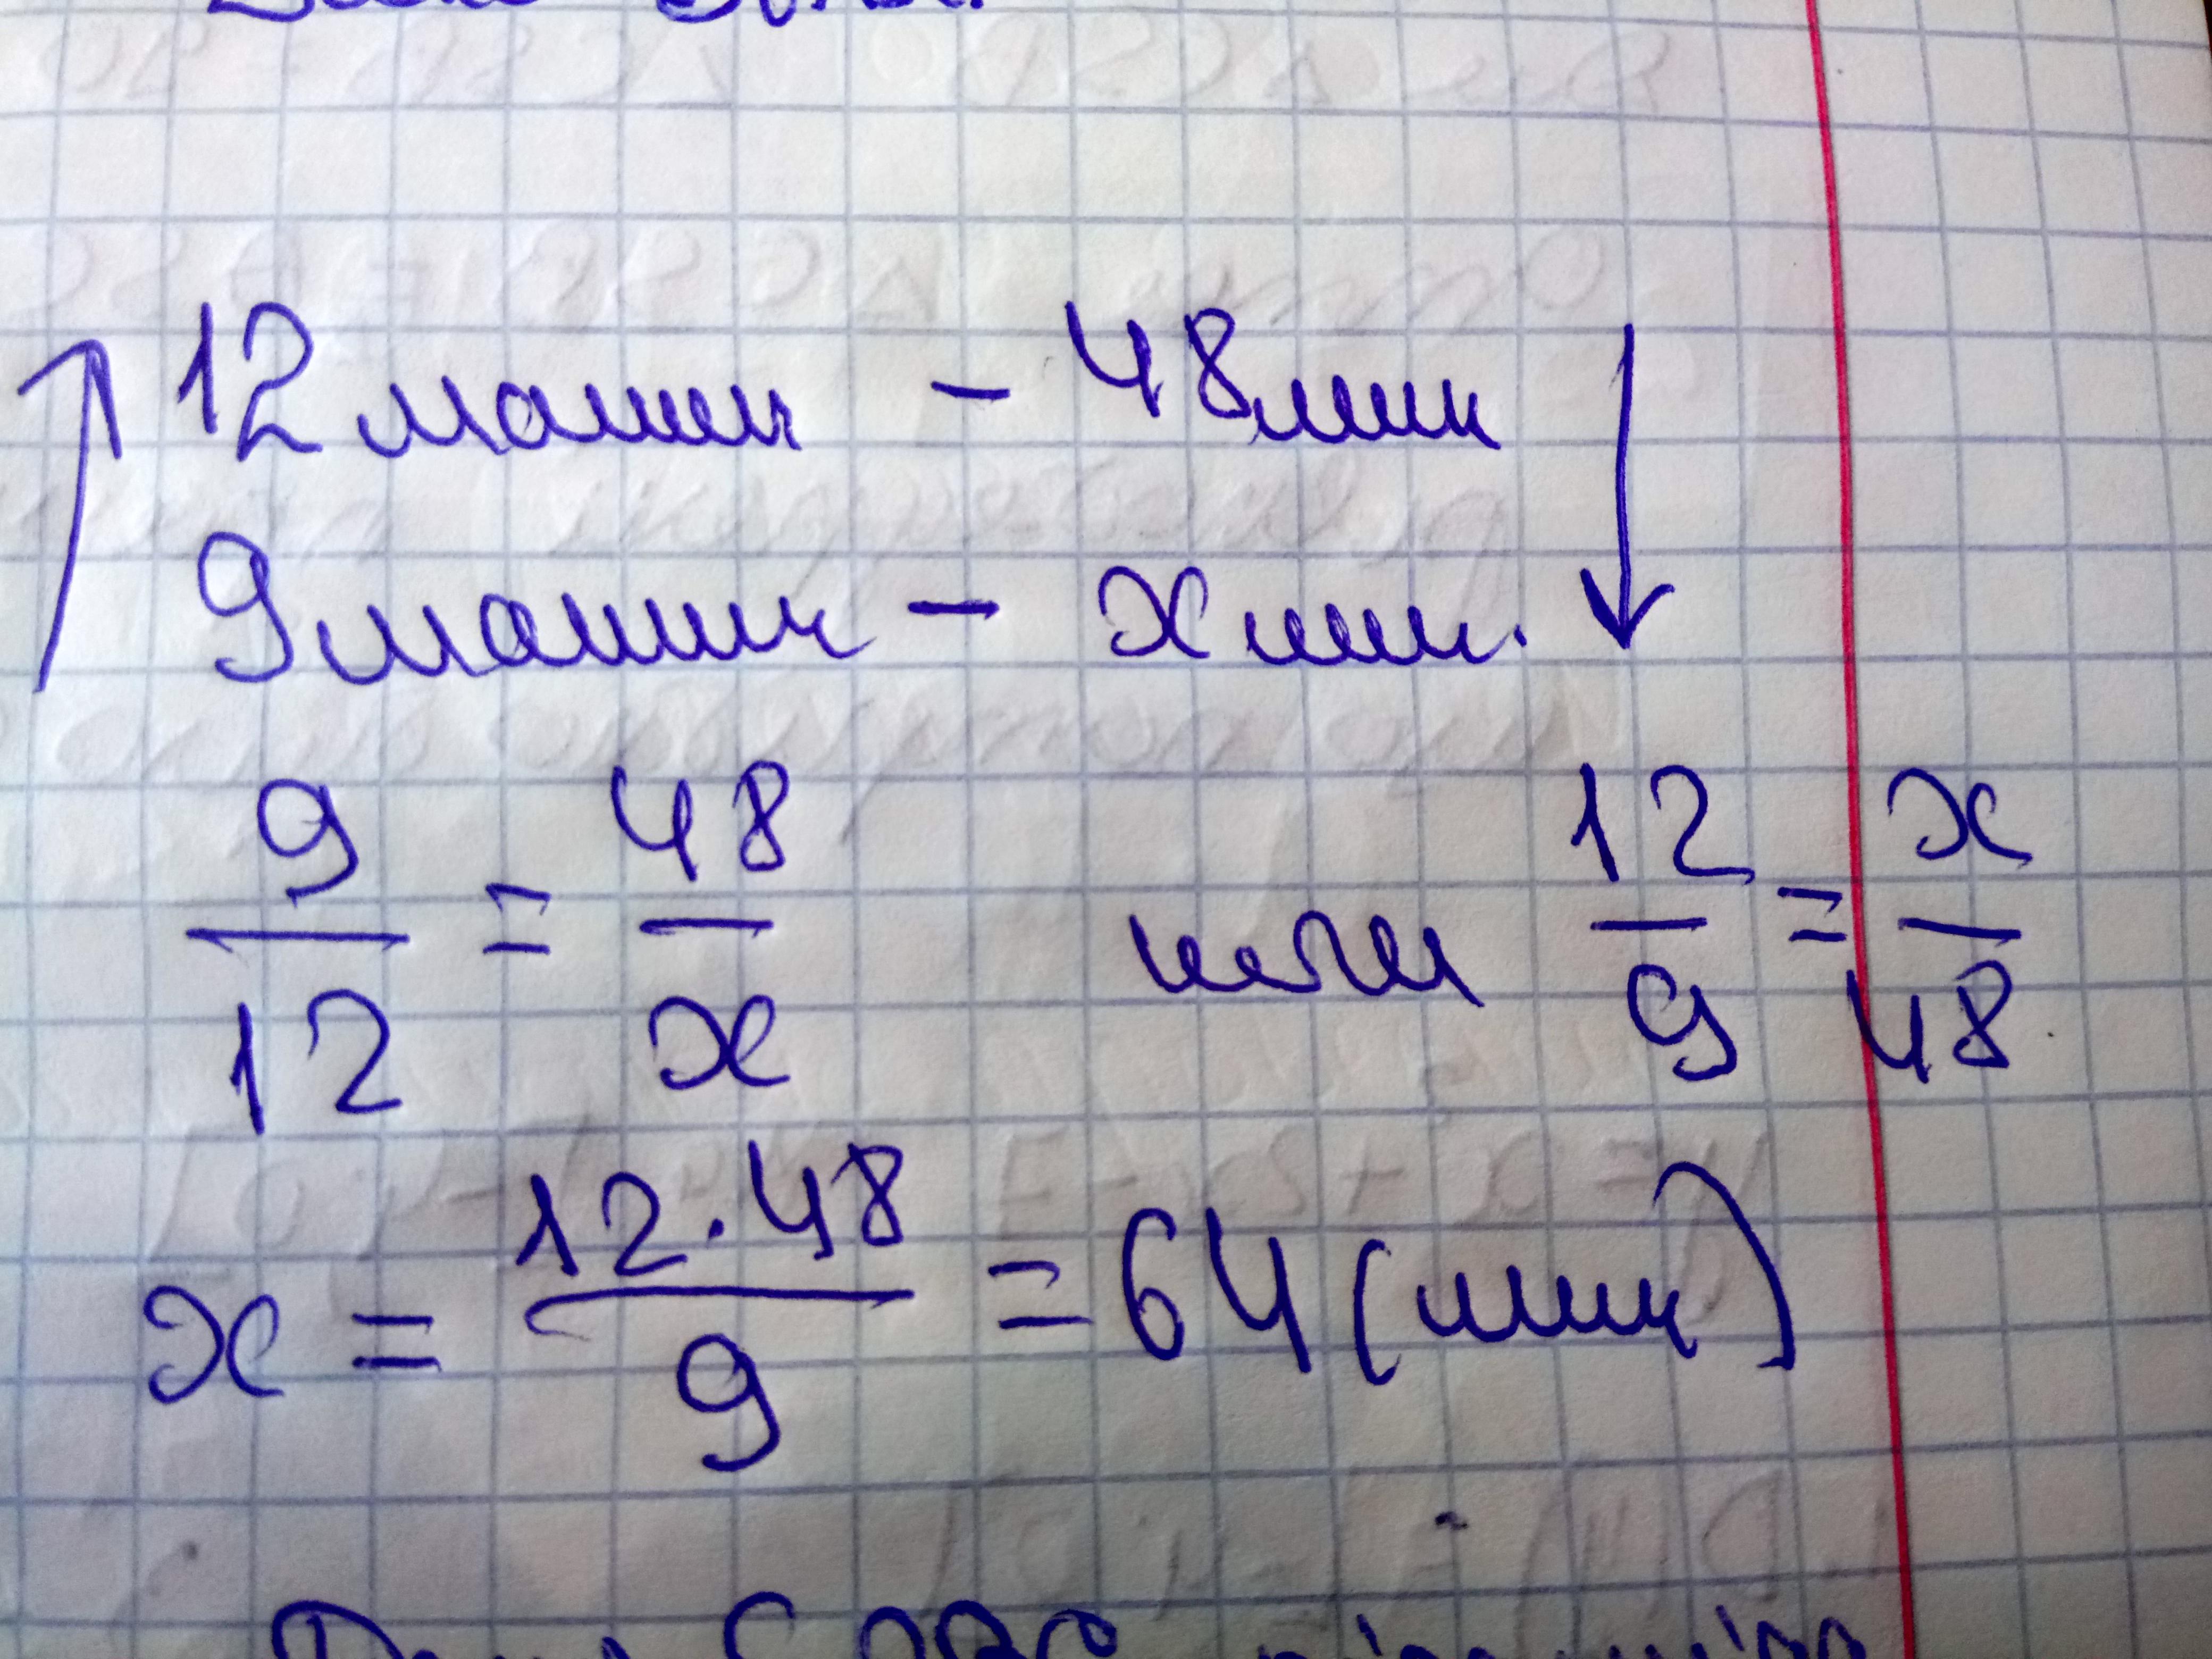 12 машин - 48 мин
9 машин - x мин.
9/12 = 48/x или 12/9 = x/48
x = 12·48/9 = 64 (мин)